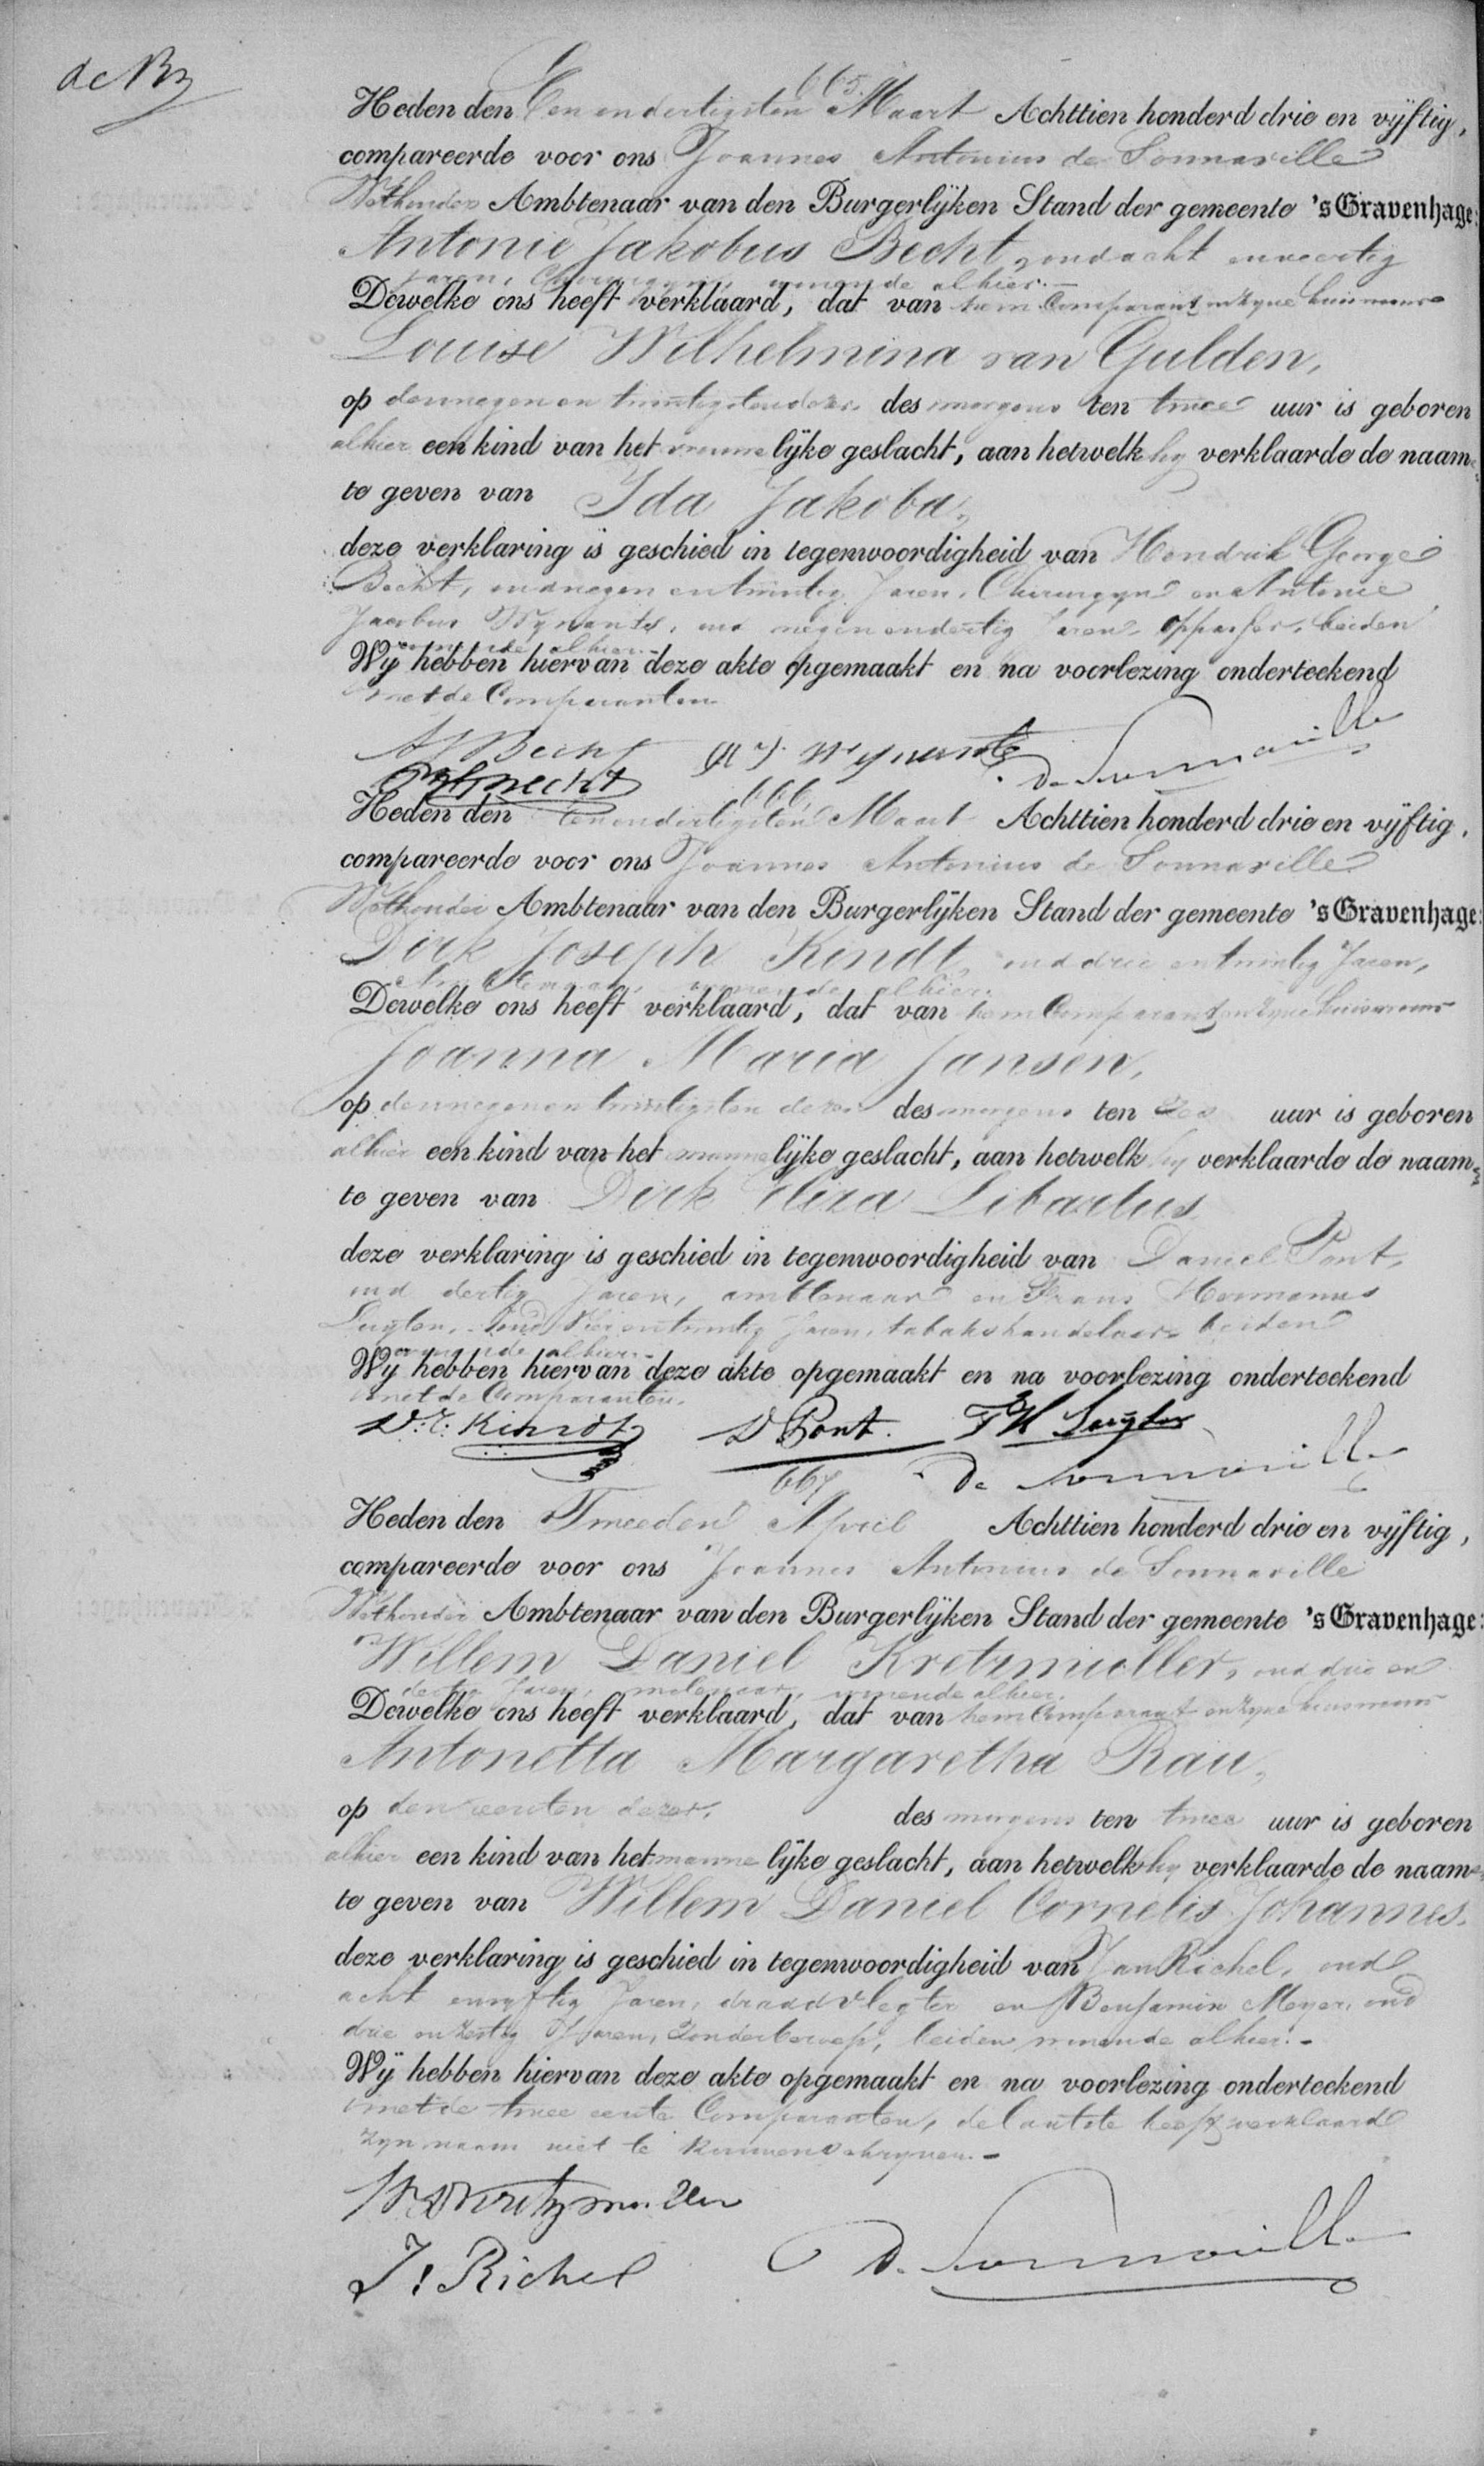 de Bz
665.
Heden den Een en dertigsten Maart Achttien honderd drie en vijftig,
compareerde voor ons Joannes Antonius de Sonnaville
Wethouder Ambtenaar van den Burgerlijken Stand der gemeente 's Gravenhage:
Antonie Jakobus Becht, oud acht en veertig
Jaren, Chirurgyn, wonende alhier.-
Dewelke ons heeft verklaard, dat van hem Comparant en zyne huisvrouw
Louise Wilhelmina van Gulden,
op den negen en twintigsten dezer des morgens ten twee uur is geboren
alhier een kind van het vrouwelijke geslacht, aan hetwelk hy verklaarde de naame
te geven van Ida Jakoba,
deze verklaring is geschied in tegenwoordigheid van Hendrik George
Becht, oud negen en twintig Jaren, Chirurgyn en Antonie
Jacobus Wynants, oud negen en dertig Jaren, Oppasser, beiden
wonende alhier.-
Wij hebben hiervan deze akte opgemaakt en na voorlezing onderteekend
met de Comparanten
AJ Becht A J. Wynants
HGBecht de Sonnaville
666.
Heden den Een en dertigsten Maart Achttien honderd drie en vijftig,
compareerde voor ons Joannes Antonius de Sonnaville
Wethouder Ambtenaar van den Burgerlijken Stand der gemeente 's Gravenhage:
Dirk Joseph Kindt, oud drie en twintig Jaren,
Ambtenaar, wonende alhier.
Dewelke ons heeft verklaard, dat van hem Comparant en zyne huisvrouw
Joanna Maria Jansen,
op den negen en twintigsten dezer des morgens ten zes uur is geboren
alhier een kind van het mannelijke geslacht, aan hetwelk hy verklaarde de naame
te geven van Dirk Eliza Libartus
deze verklaring is geschied in tegenwoordigheid van Daniel Pont,
oud dertig Jaren, ambtenaar en Frans Hermanus
Luyten, oud vier en twintig Jaren, tabakshandelaar beiden
wonende alhier.-
Wij hebben hiervan deze akte opgemaakt en na voorlezing onderteekend
met de Comparanten.
D. J. Kindt D Pont. F H Luyten
667 de Sonnaville
Heden den Tweeden April Achttien honderd drie en vijftig,
compareerde voor ons Joannes Antonius de Sonnaville
Wethouder Ambtenaar van den Burgerlijken Stand der gemeente 's Gravenhage:
Willem Daniel Kretzmuller, oud drie en
dertig Jaren, molenaar, wonende alhier.
Dewelke ons heeft verklaard, dat van hem Comparant en zyne huisvrouw
Antonetta Margaretha Rau,
op den eersten dezer, des morgens ten twee uur is geboren
alhier een kind van het mannelijke geslacht, aan hetwelk hy verklaarde de naame
te geven van Willem Daniel Cornelis Johannes.
deze verklaring is geschied in tegenwoordigheid van Jan Richel, oud
acht en vyftig Jaren, draadvlegter en Benjamin Meyer, oud
drie en zestig Jaren, zonder beroep, beiden wonende alhier.-
Wij hebben hiervan deze akte opgemaakt en na voorlezing onderteekend
met de twee eerste Comparanten, de laatste heeft verklaard
zyn naam niet te kunnen schryven.-
W D Kretzmuller
J. Richel de Sonnaville